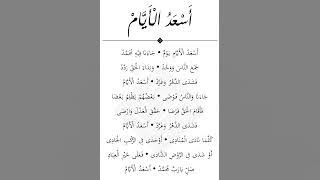 أَسْعَدُ الْأَيَّامْ
أَسْعَدُ الْأَيَّامِ يَوْمٌ • جَاءَنَا فِيْهِ مُحَمَّدْ
جَمَعَ النَّاسَ وَوَحَّدْ • وَنِدَاءَ الْحَقِّ رَدَّدْ
فَشَدَى الدَّهْرُ وَغَرَّدْ • أَسْعَدُ الْأَيَّامْ
جَاءَنَا وَالنَّاسُ فَوْضَى • بَعْضُهُمْ يَظْلِمُ بَعْضَا
فَأَقَامَ الْحَقَّ فَرْضَا • حَقَّقَ الْعَدْلَ وَأَرْضَى
فَشَدَى الدَّهْرُ وَغَرَّدْ • أَسْعَدُ الْأَيَّامْ
كُلَّمَا نَادَى الْمُنَادِى • أَوْ حَدَى فِى الرَّكْبِ الْحَادِى
أَوْ شَدَى فِى الرَّوْضِ الشَّادِى • فَعَلَى خَيْرِ الْعِبَادِ
صَلِّ يَارَبِّ مُحَمَّدْ • أَسْعَدُ الْأَيَّامْ